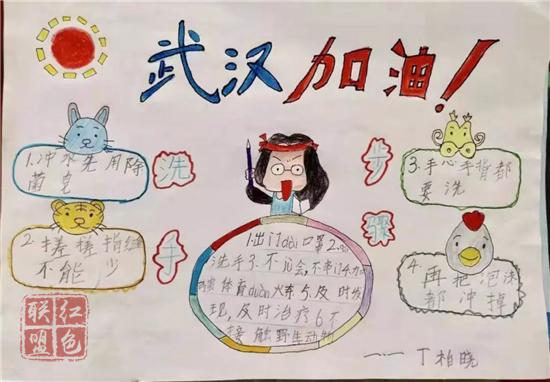 武汉加油!
1.冲水先用除
菌皂
洗
手
步
骤
2.搓搓指缝
不能少
3.手心手背都
要洗
4.再把泡沫
都冲掉
1.出门dai口罩2.
洗手3.不
体育duàn 5.及时发
现,及时治疗6不
接触野生动物
一.一 丁柏晓
红色
联盟